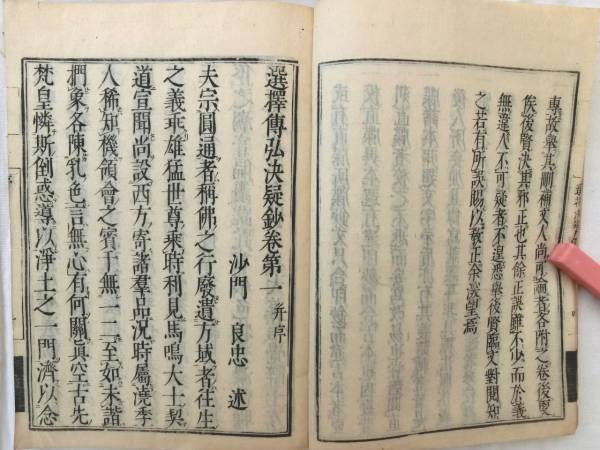 專故舉其刪補文人尚可論者各附之卷後要
俟後賢決其邪正也其餘正誤雖不少而於義
無違人不可疑者不遑悉舉後賢臨文對閱知
之若有所誤賜以敎正余深望焉
選擇傳弘決疑鈔卷第一 并序
沙門 良忠 述
夫宗圓通者稱佛之行廢遺方域者往生
之義乖雄猛世尊乘時利見馬鳴大士契
道宣聞尚設西方寄諸羣品況時屬澆季
人稀知機領會之賓千無一二至如未諧
捫象各陳乳色言無心有何關眞空古先
梵皇憐斯倒惑導以淨土之一門濟以念